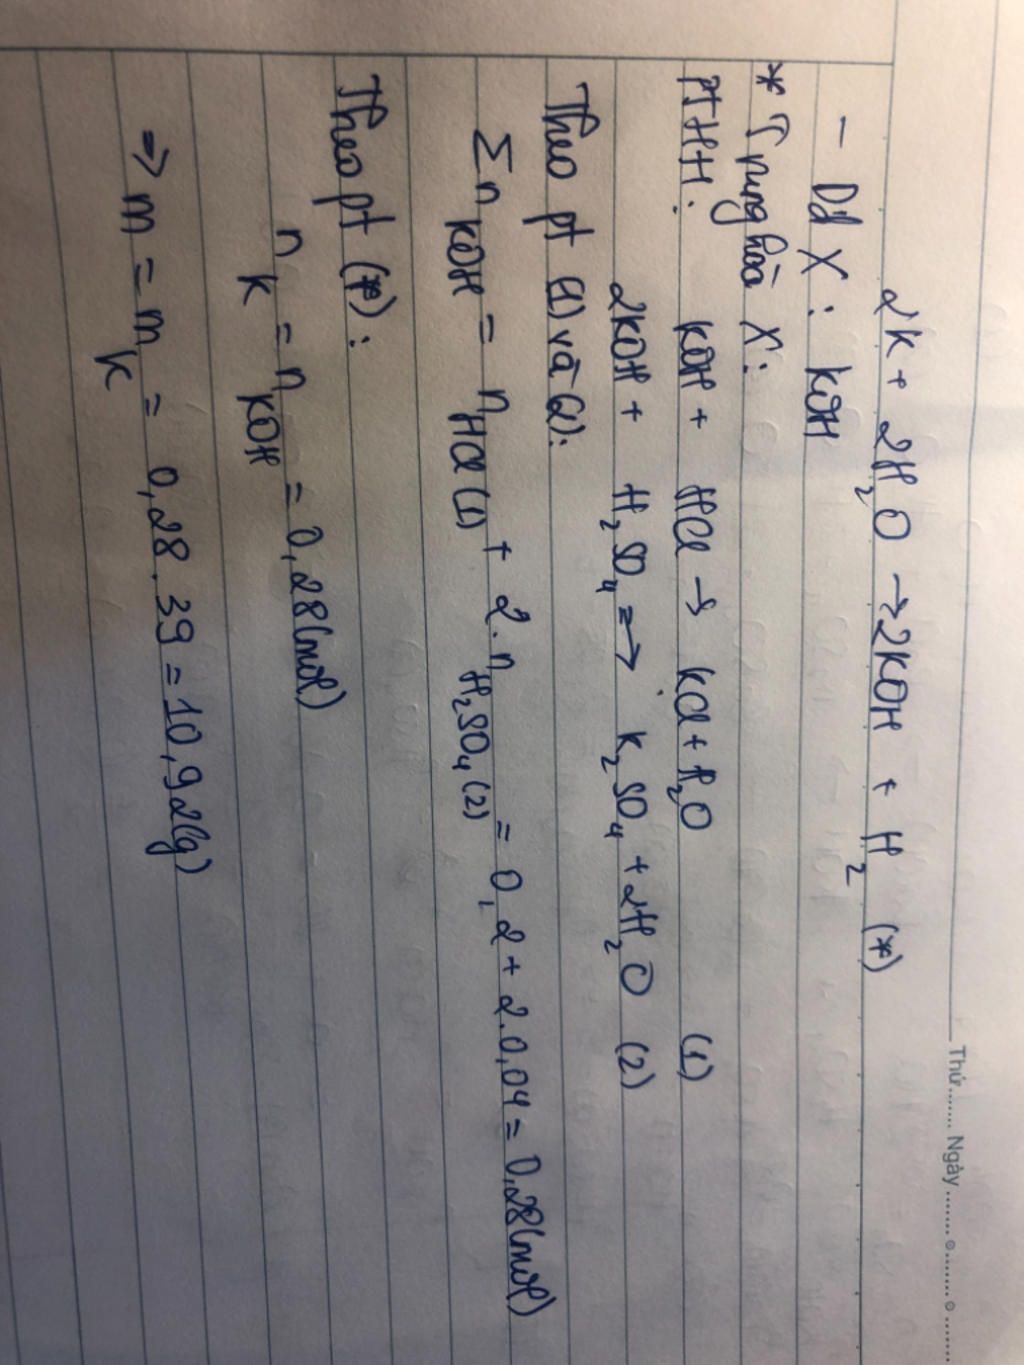 Thứ........ Ngày ........ ○........ ○ .....
2K + 2H₂O → 2KOH + H₂ (*)
- Dd X : KOH
* Trung hòa X :
PTHH: KOH + HCl → KCl + H₂O (1)
2KOH + H₂SO₄ => K₂SO₄ + 2H₂O (2)
Theo pt (1) và (2):
Σn KOH = n HCl (1) + 2.n H₂SO₄ (2) = 0,2 + 2.0,04 = 0,28 (mol)
Theo pt (*) :
n K = n KOH = 0,28 (mol)
=> m = m K = 0,28 . 39 = 10,92 (g)